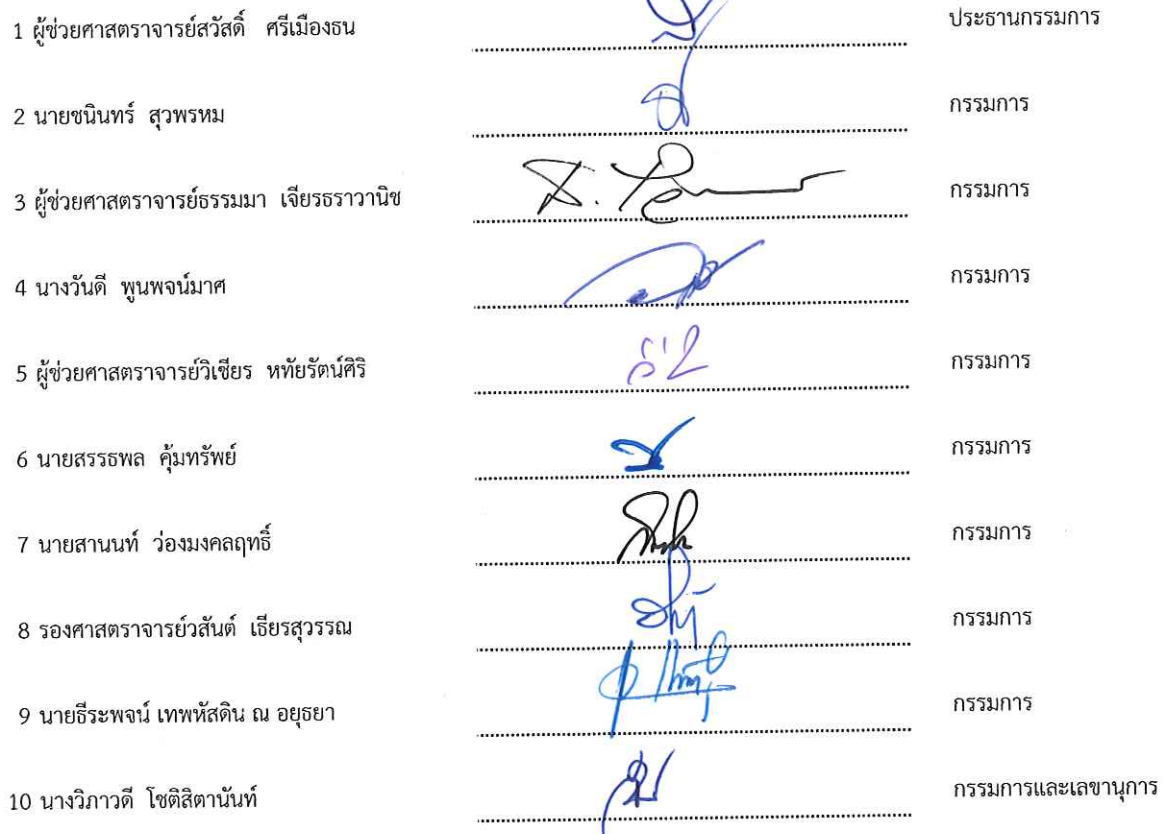 1 ผู้ช่วยศาสตราจารย์สวัสดิ์ ศรีเมืองธน ประธานกรรมการ
2 นายชนินทร์ สุวพรหม กรรมการ
3 ผู้ช่วยศาสตราจารย์ธรรมมา เจียรธราวานิช กรรมการ
4 นางวันดี พูนพจน์มาศ กรรมการ
5 ผู้ช่วยศาสตราจารย์วิเชียร หทัยรัตน์ศิริ กรรมการ
6 นายสรรธพล คุ้มทรัพย์ กรรมการ
7 นายสานนท์ ว่องมงคลฤทธิ์ กรรมการ
8 รองศาสตราจารย์วสันต์ เธียรสุวรรณ กรรมการ
9 นายธีระพจน์ เทพหัสดิน ณ อยุธยา กรรมการ
10 นางวิภาวดี โชติสิตานันท์ กรรมการและเลขานุการ